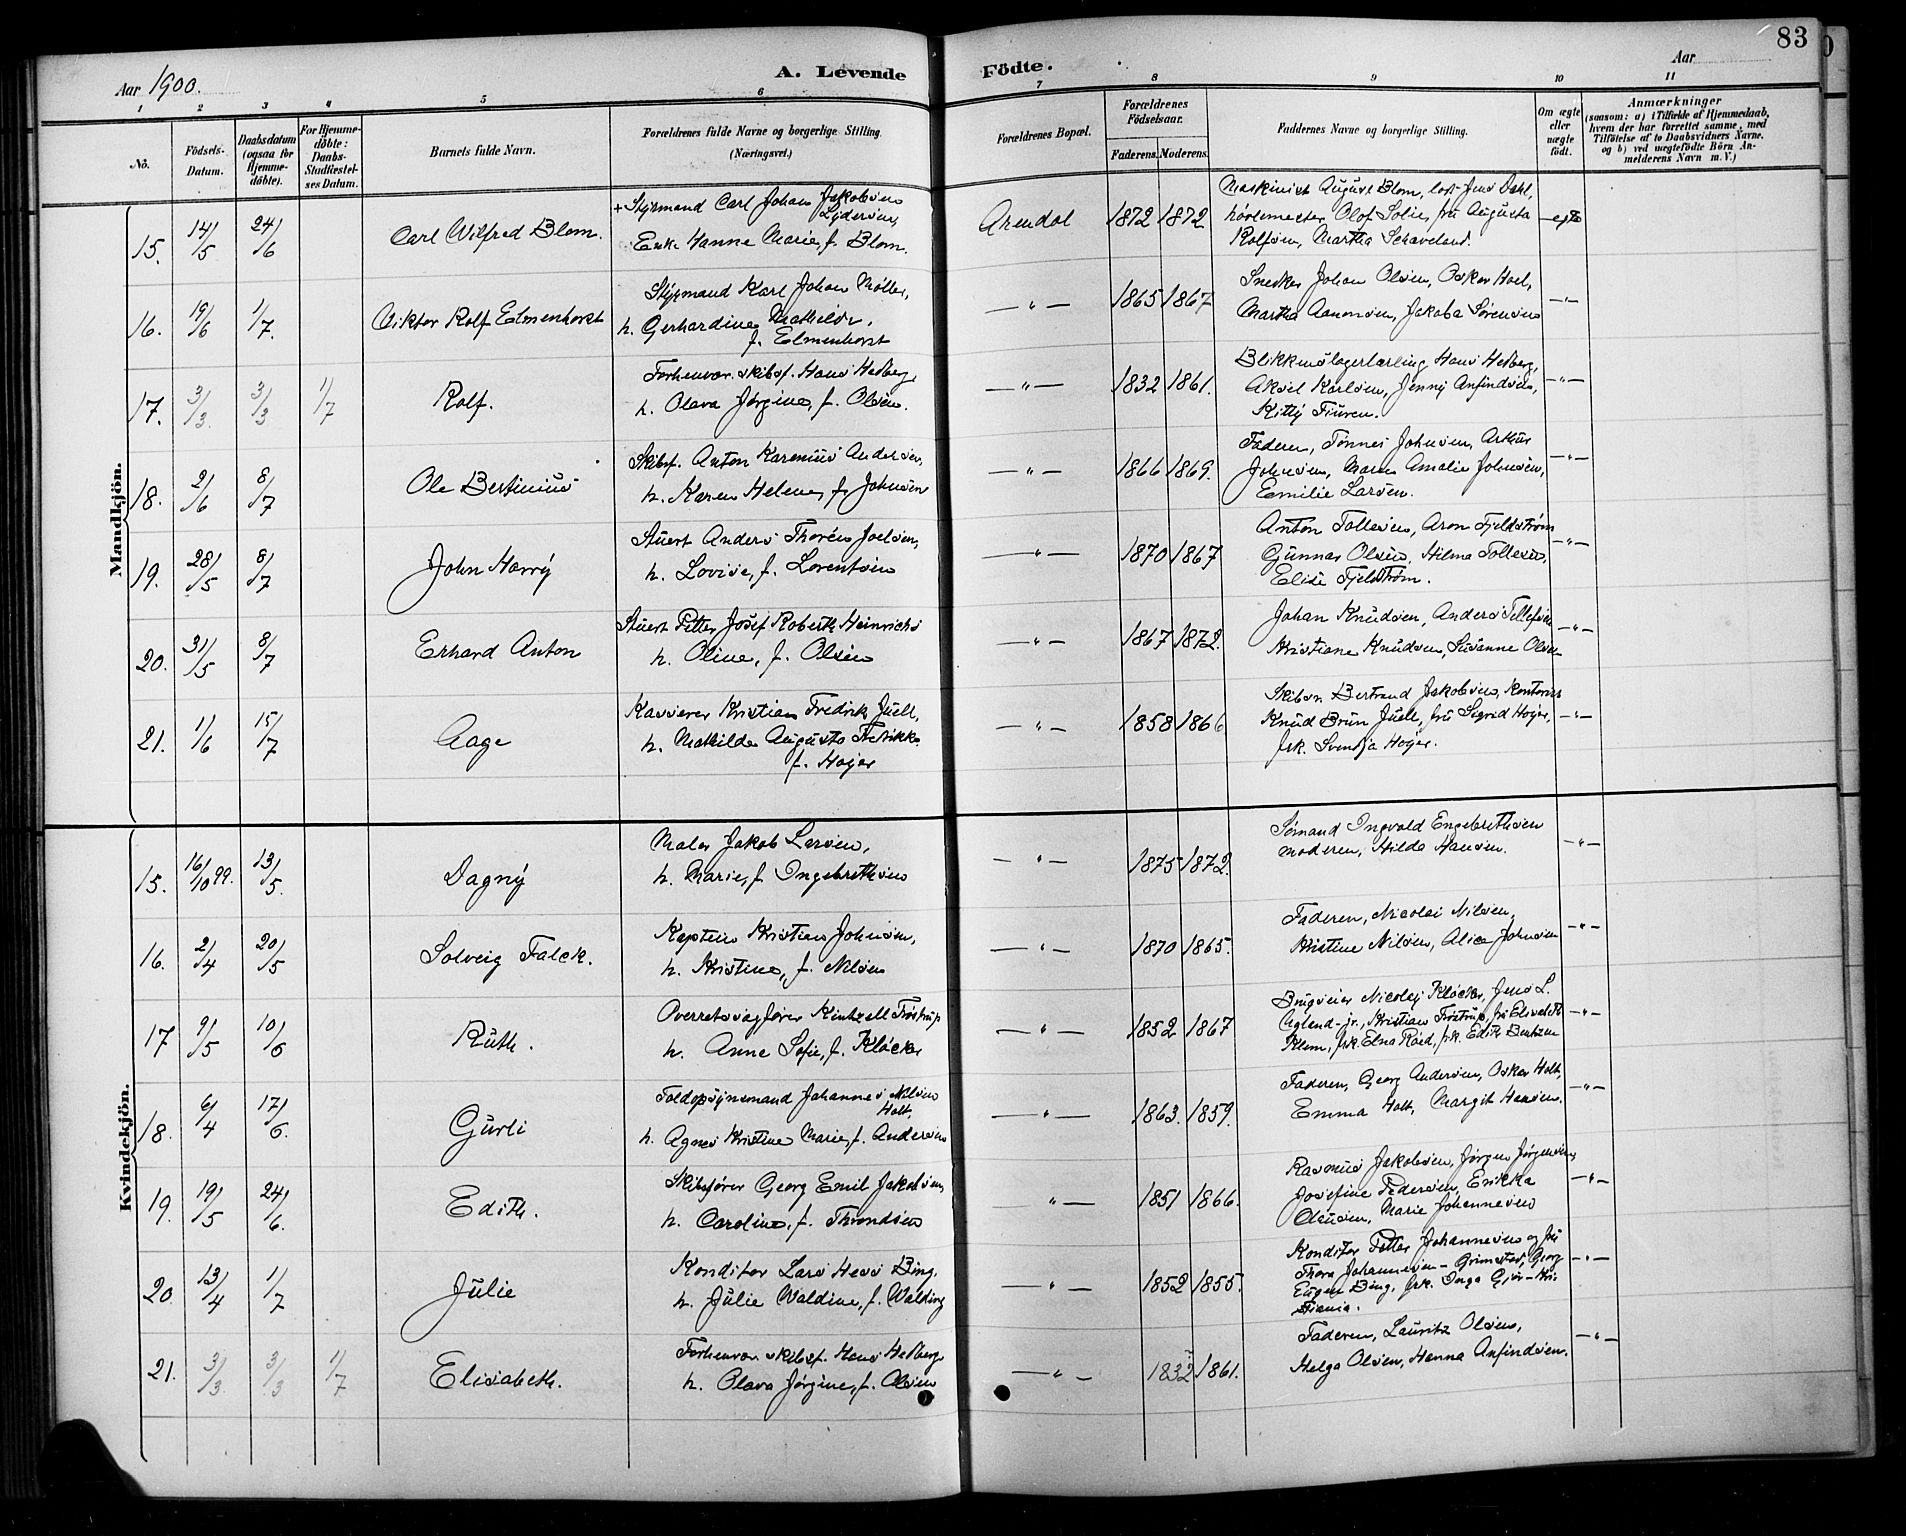 83
Aar 1900.
A. Levende Födte.
Aar
1 2 3 4 5 6 7 8 9 10 11
No.
Födsels-
Datum.
Daabsdatum
(ogsaa for
Hjemme-
döbte).
For Hjemme-
döbte:
Daabs-
Stadfæstel-
ses Datum.
Barnets fulde Navn.
Forældrenes fulde Navne og borgerlige Stilling.
(Næringsvei.)
Forældrenes Bopæl.
Forældrenes
Födselsaar.
Faderens. Moderens.
Faddernes Navne og borgerlige Stilling.
Om ægte
eller
uægte
födt.
Anmærkninger
(saasom: a) i Tilfælde af Hjemmedaab,
hvem der har forrettet samme, med
Tilföielse af to Daabsvidners Navne.
og b) ved uægtefödte Börn An-
melderens Navn m. V.)
Mandkjön.
15. 14/5 24/6 Carl Wilfred Blom.
+ Styrmand Carl Johan Jakobsen
Lydersen,
Enke Hanne Marie, f. Blom.
Arendal 1872 1872
Maskinist August Blom, lods Jens Dahl,
Olof Solie, fru Augusta
Rolfsen, Martha Schaveland.
egte
16. 19/6 1/7. Viktor Rolf Elmenhorst
Styrmand Karl Johan Møller,
h. Gerhardine Mathilde,
f. Elmenhorst
— " — 1865 1867
Snedker Johan Olsen, Oskar Hoel,
Martha Aanonsen, Jakoba Sørensen
— " —
17. 3/3 3/3 1/7 Rolf.
Forhenvær. skibsf. Hans Hedberg,
h. Olava Jørgine, f. Olsen.
— " — 1832 1861.
Blikkenslagerlærling Hans Hedberg,
Aksel Karlsen, Jenny Anfindsen,
Kitty Fiuren.
— " —
18. 2/6 8/7 Ole Bertinius
Skibsf. Anton Karenius Andersen,
h. Karen Helene, f. Johnsen
— " — 1866 1869.
Faderen, Tønnes Johnsen, Arthur
Johnsen, Maren Amalie Johnsen,
Emilie Larsen.
— " —
19. 28/5 8/7 John Harry
Stuert Anders Thorén Joelsen,
h. Lovise, f. Lorentsen
— " — 1870 1867
Anton Tollefsen, Aron Fjeldstrøm
Gunnar Olsen, Hilma Tollefsen,
Elise Fjeldstrøm.
— " —
20. 31/5 8/7 Erhard Anton
Stuert Petter Josef Roberth Heinrichs
h. Oline, f. Olsen
— " — 1867 1872.
Johan Knudsen, Anders Tellefsen
Kristiane Knudsen, Susanne Olsen
— " —
21. 1/6 15/7 Aage
Kasserer Kristian Fredrik Juell,
h. Mathilde Augusta Fredrikke
f. Høyer
— " — 1858 1866
Skibsr. Bertrand Jakobsen, Kontorist
Knud Brun Juell, fru Sigrid Høyer,
frk. Svendja Høyer.
— " —
Kvindekjön.
15. 16/10 99. 13/5. Dagny
Maler Jakob Larsen,
h. Marie, f. Ingebrethsen
— " — 1875 1872.
Sømand Ingvald Engebrethsen
moderen, Hilda Hansen.
— " —
16. 2/4 20/5 Solveig Falck.
Kaptein Kristian Johnsen,
h. Kristine, f. Nilsen
— " — 1870 1865.
Faderen, Nicolai Nilsen,
Kristine Nilsen, Alice Johnsen
— " —
17 9/5 10/6 Ruth.
Overretssagfører Kintzell Frøstrup
h. Anne Sofie, f. Kløcker
— " — 1852 1867
Brugseier Nicolay Kløcker, Jens L.
Ugland jr., Kristian Frøstrup, fru Elisabeth
Klem, frk. Elna Röed, frk. Edith Bentzen
— " —
18. 6/4 17/6. Gurli
Toldopsynsmand Johannes Nilsen
Holt,
h. Agnes Kristine Marie, f. Andersen
— " — 1863. 1859.
Faderen, Georg Andersen, Oskar Holt,
Emma Holt, Margit Hansen.
— " —
19. 19/5 24/6. Edith.
Skibsfører Georg Emil Jakobsen,
h. Caroline, f. Throndsen
" — 1851 1866.
Rasmus Jakobsen, Jørgen Jørgensen,
Josefine Pedersen, Erikka
Olausen, Marie Johannesen
— " —
20. 13/4 1/7 Julie
Konditor Lars Hess Bing,
h. Julie Waldine, f. Walding
— " — 1852 1855.
Konditor Petter Johannesen og fru
Thora Johannesen - Grimstad, Georg
Eugen Bing, frk. Inga Gjør - Kri-
stiania.
— " —
21. 3/3 3/3 1/7 Elisabeth.
Forhenvær. skibsf. Hans Hedberg
h. Olava Jørgine, f. Olsen
— " — 1832 1861.
Faderen, Lauritz Olsen,
Helga Olsen, Hanna Anfindsen.
— " —